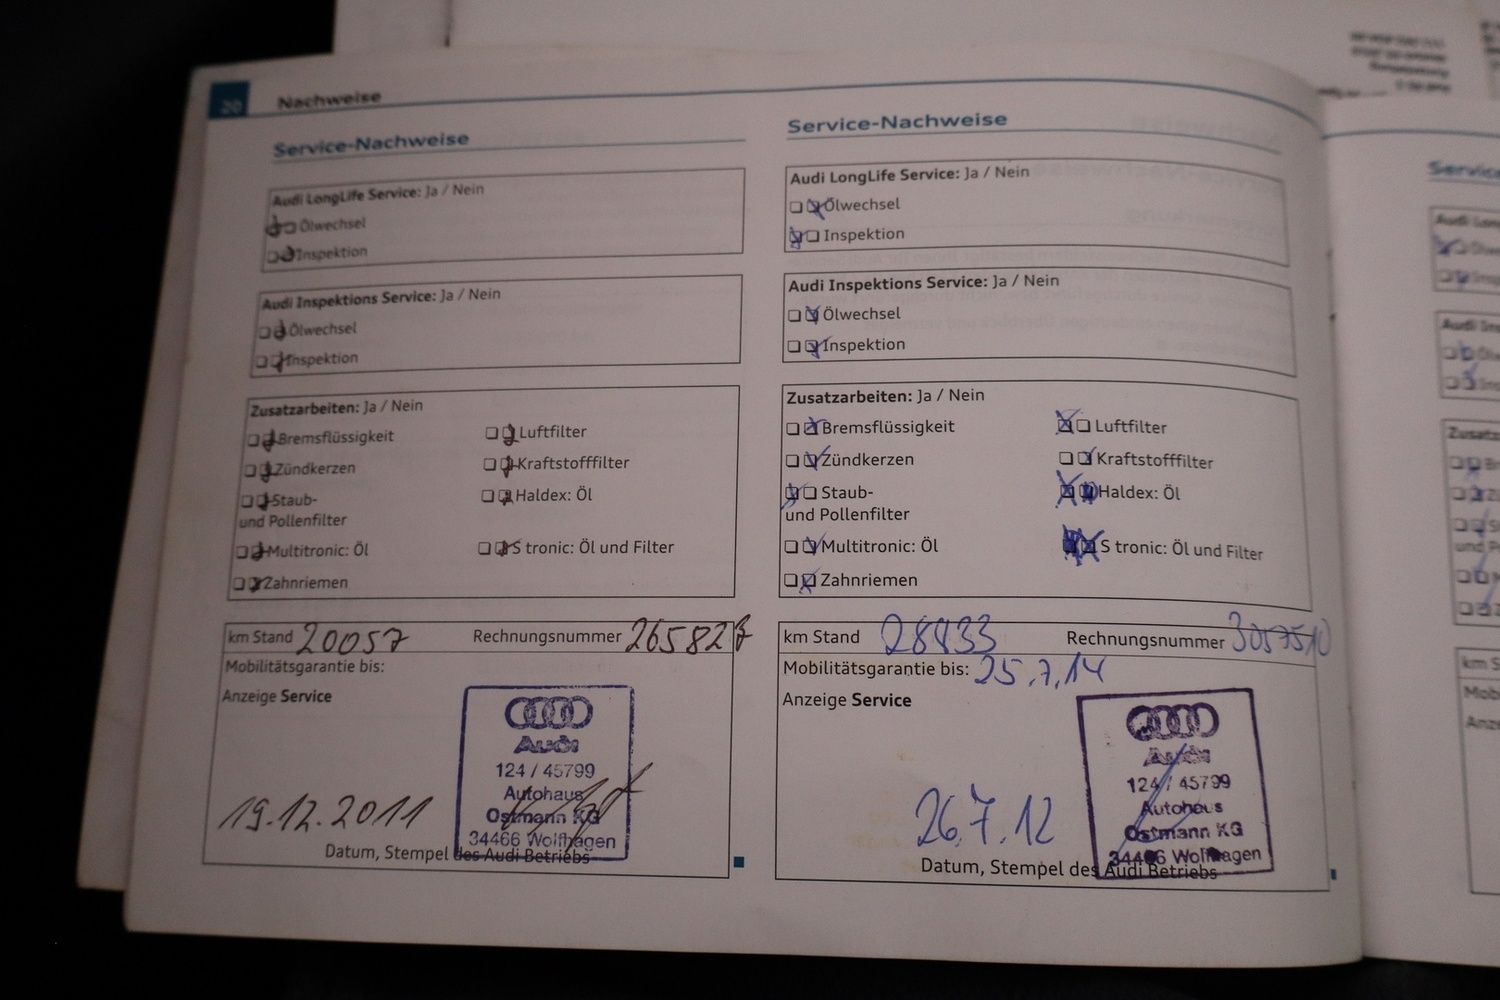 20 Nachweise
Service-Nachweise
Audi LongLife Service: Ja / Nein
Ölwechsel
Inspektion
Audi Inspektions Service: Ja / Nein
Ölwechsel
Inspektion
Zusatzarbeiten: Ja / Nein
Bremsflüssigkeit
Luftfilter
Zündkerzen
Kraftstofffilter
Staub-
und Pollenfilter
Haldex: Öl
Multitronic: Öl
S tronic: Öl und Filter
Zahnriemen
km Stand 20057
Rechnungsnummer 265827
Mobilitätsgarantie bis:
Anzeige Service
Audi
124 / 45799
Autohaus
Ostmann KG
34466 Wolfhagen
19.12.2011
Datum, Stempel des Audi Betriebs
Service-Nachweise
Audi LongLife Service: Ja / Nein
Ölwechsel
Inspektion
Audi Inspektions Service: Ja / Nein
Ölwechsel
Inspektion
Zusatzarbeiten: Ja / Nein
Bremsflüssigkeit
Luftfilter
Zündkerzen
Kraftstofffilter
Staub-
und Pollenfilter
Haldex: Öl
Multitronic: Öl
S tronic: Öl und Filter
Zahnriemen
km Stand 28933
Rechnungsnummer 3057510
Mobilitätsgarantie bis: 25.7.14
Anzeige Service
Audi
124 / 45799
Autohaus
Ostmann KG
34466 Wolfhagen
26.7.12
Datum, Stempel des Audi Betriebs
Service
Audi
Audi
km S